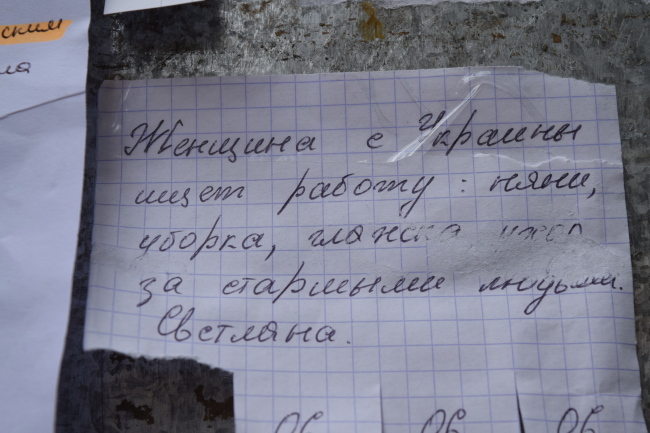 ским
ла
Женщина с Украины
ищет работу: няни,
уборка, глажка, уход
за старшыми людьми.
Светлана.
06 06 06